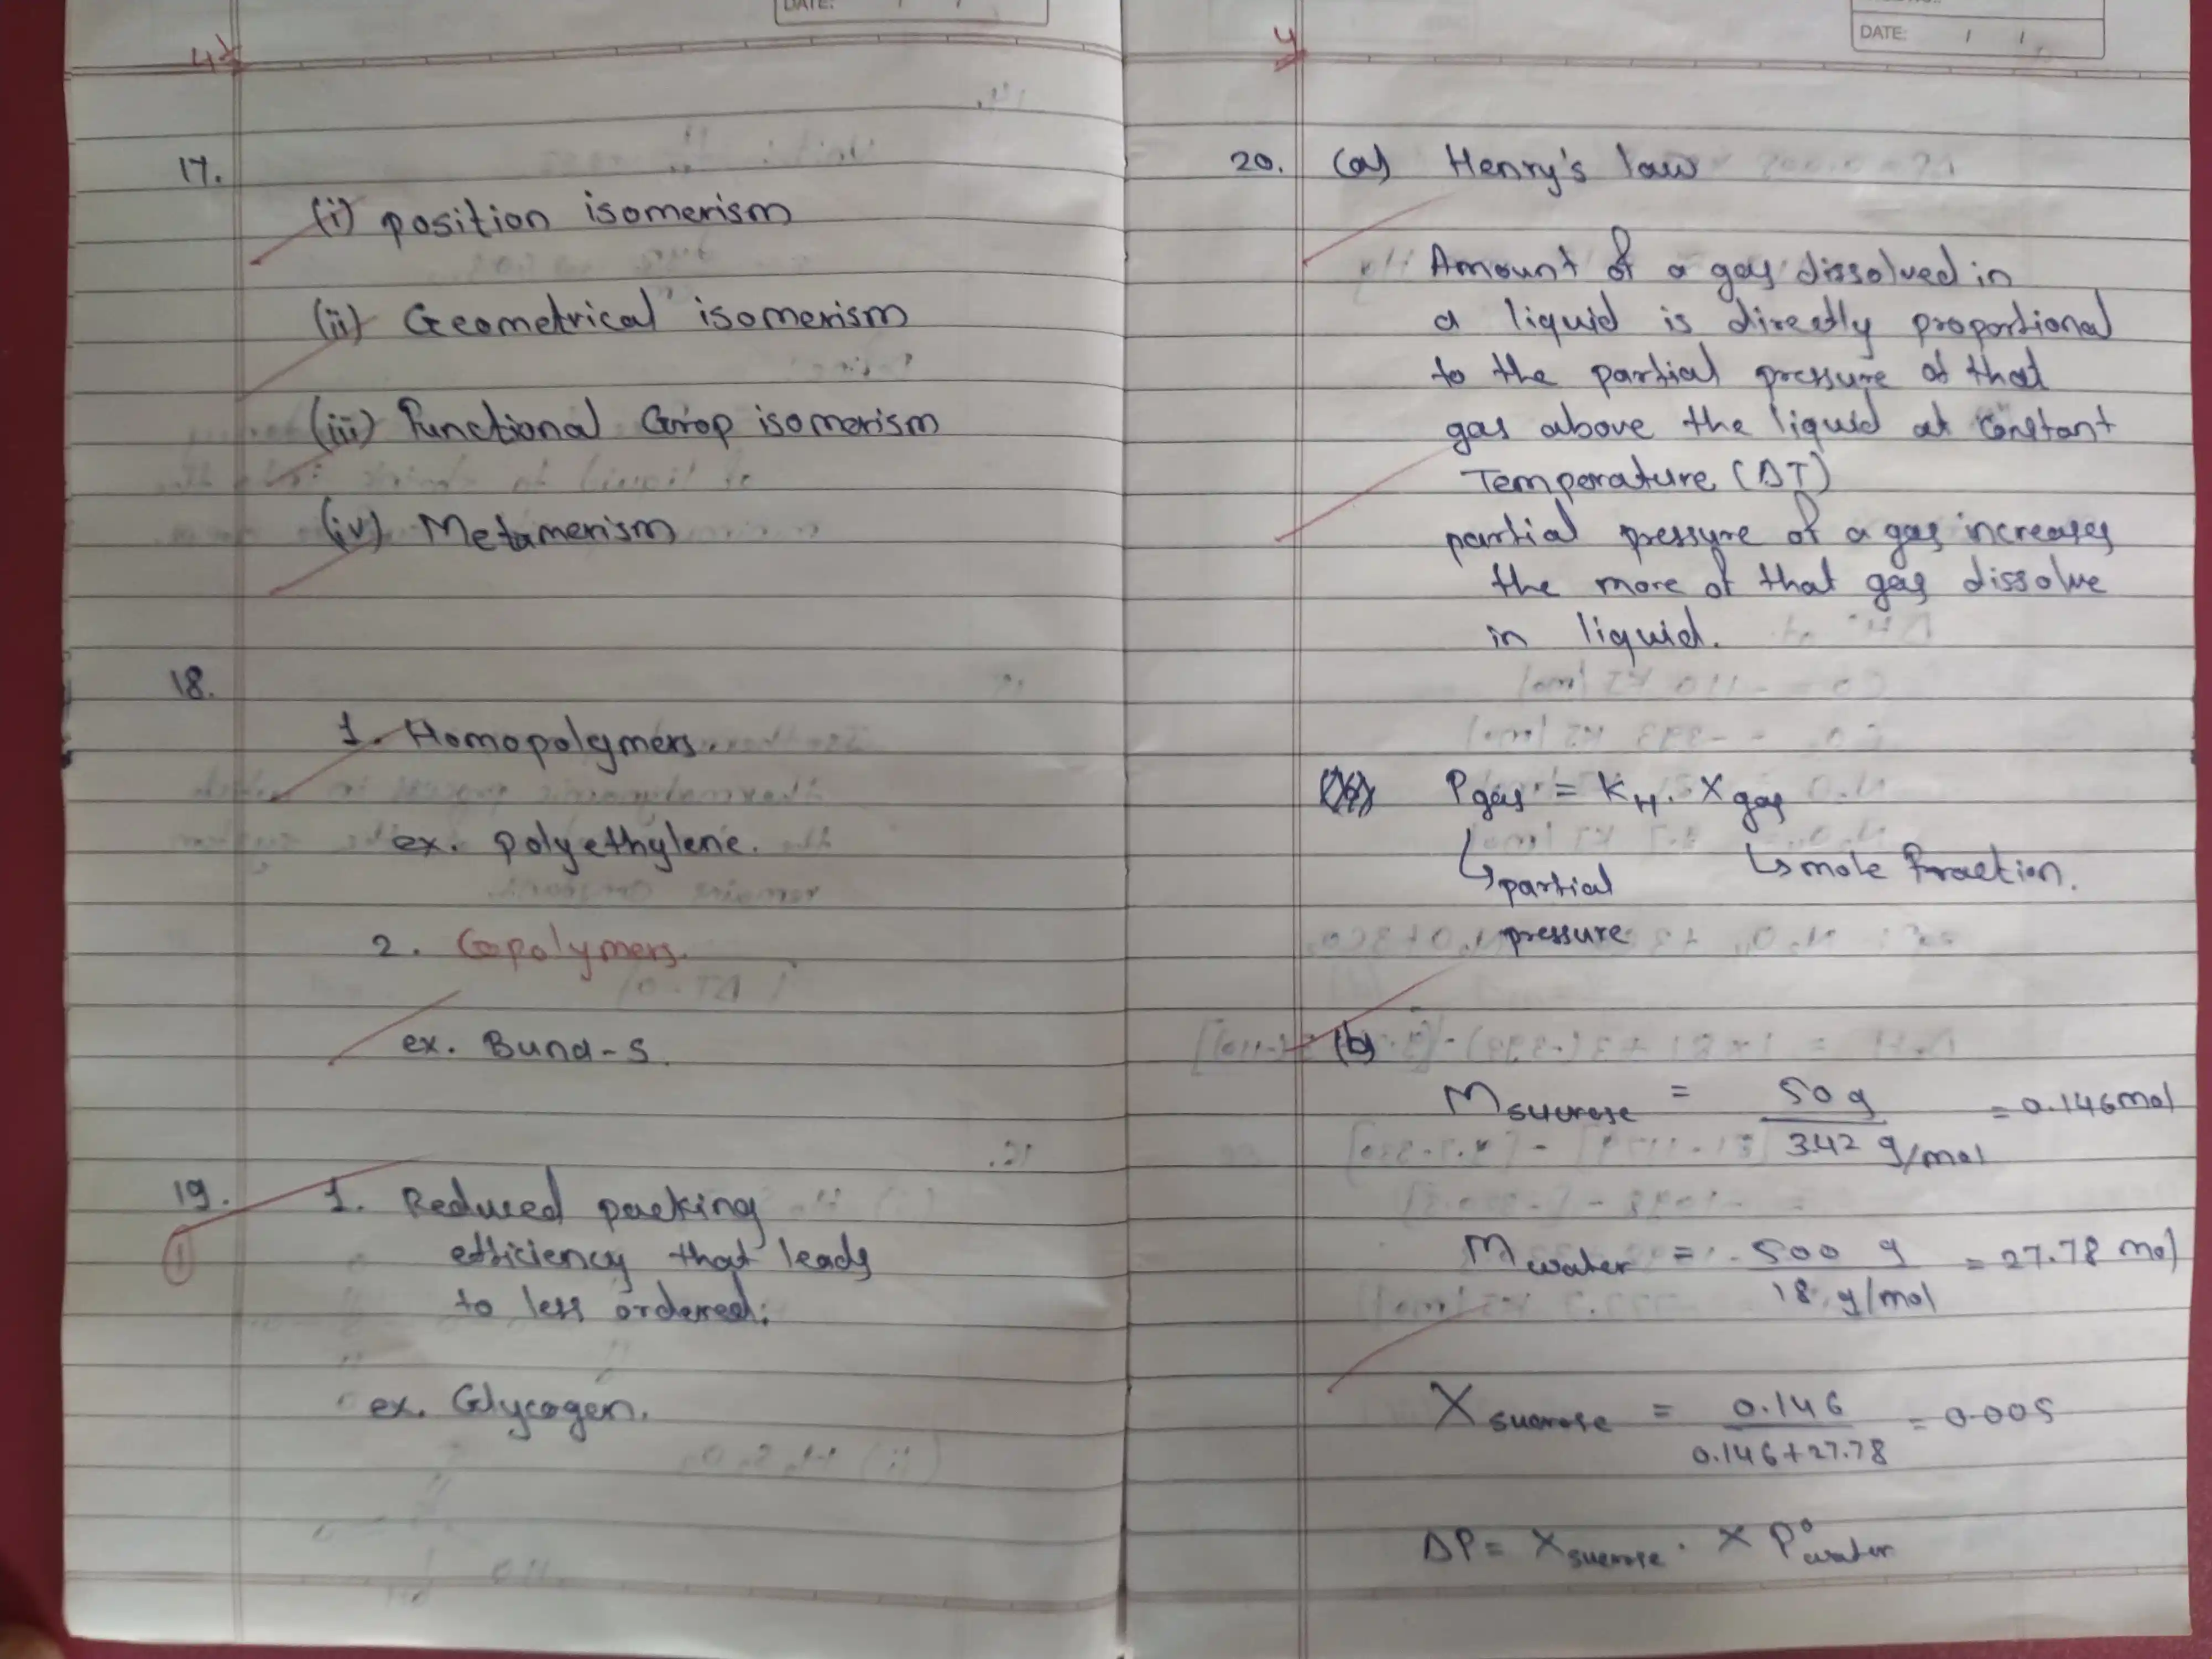 DATE:
4
17.
(i) position isomerism
(ii) Geometrical isomerism
(iii) Functional Grop isomerism
(iv) Metamerism
18.
1. Homopolymers.
ex. polyethylene.
2. Copolymers.
ex. Buna-S.
19. 1. Reduced packing
1
efficiency that leads
to less ordered.
ex. Glycogen.
DATE: / /
4
20. (a) Henry's law
Amount of a gas dissolved in
a liquid is directly proportional
to the partial pressure of that
gas above the liquid at constant
Temperature (ΔT)
partial pressure of a gas increases
the more of that gas dissolve
in liquid.
Pgas = KH. Xgas
↳ partial ↳ mole fraction.
pressure
(b)
M sucrose = 50 g / 342 g/mol = 0.146 mol
M water = 500 g / 18 g/mol = 27.78 mol
X sucrose = 0.146 / 0.146+27.78 = 0.005
ΔP = X sucrose . X P°water